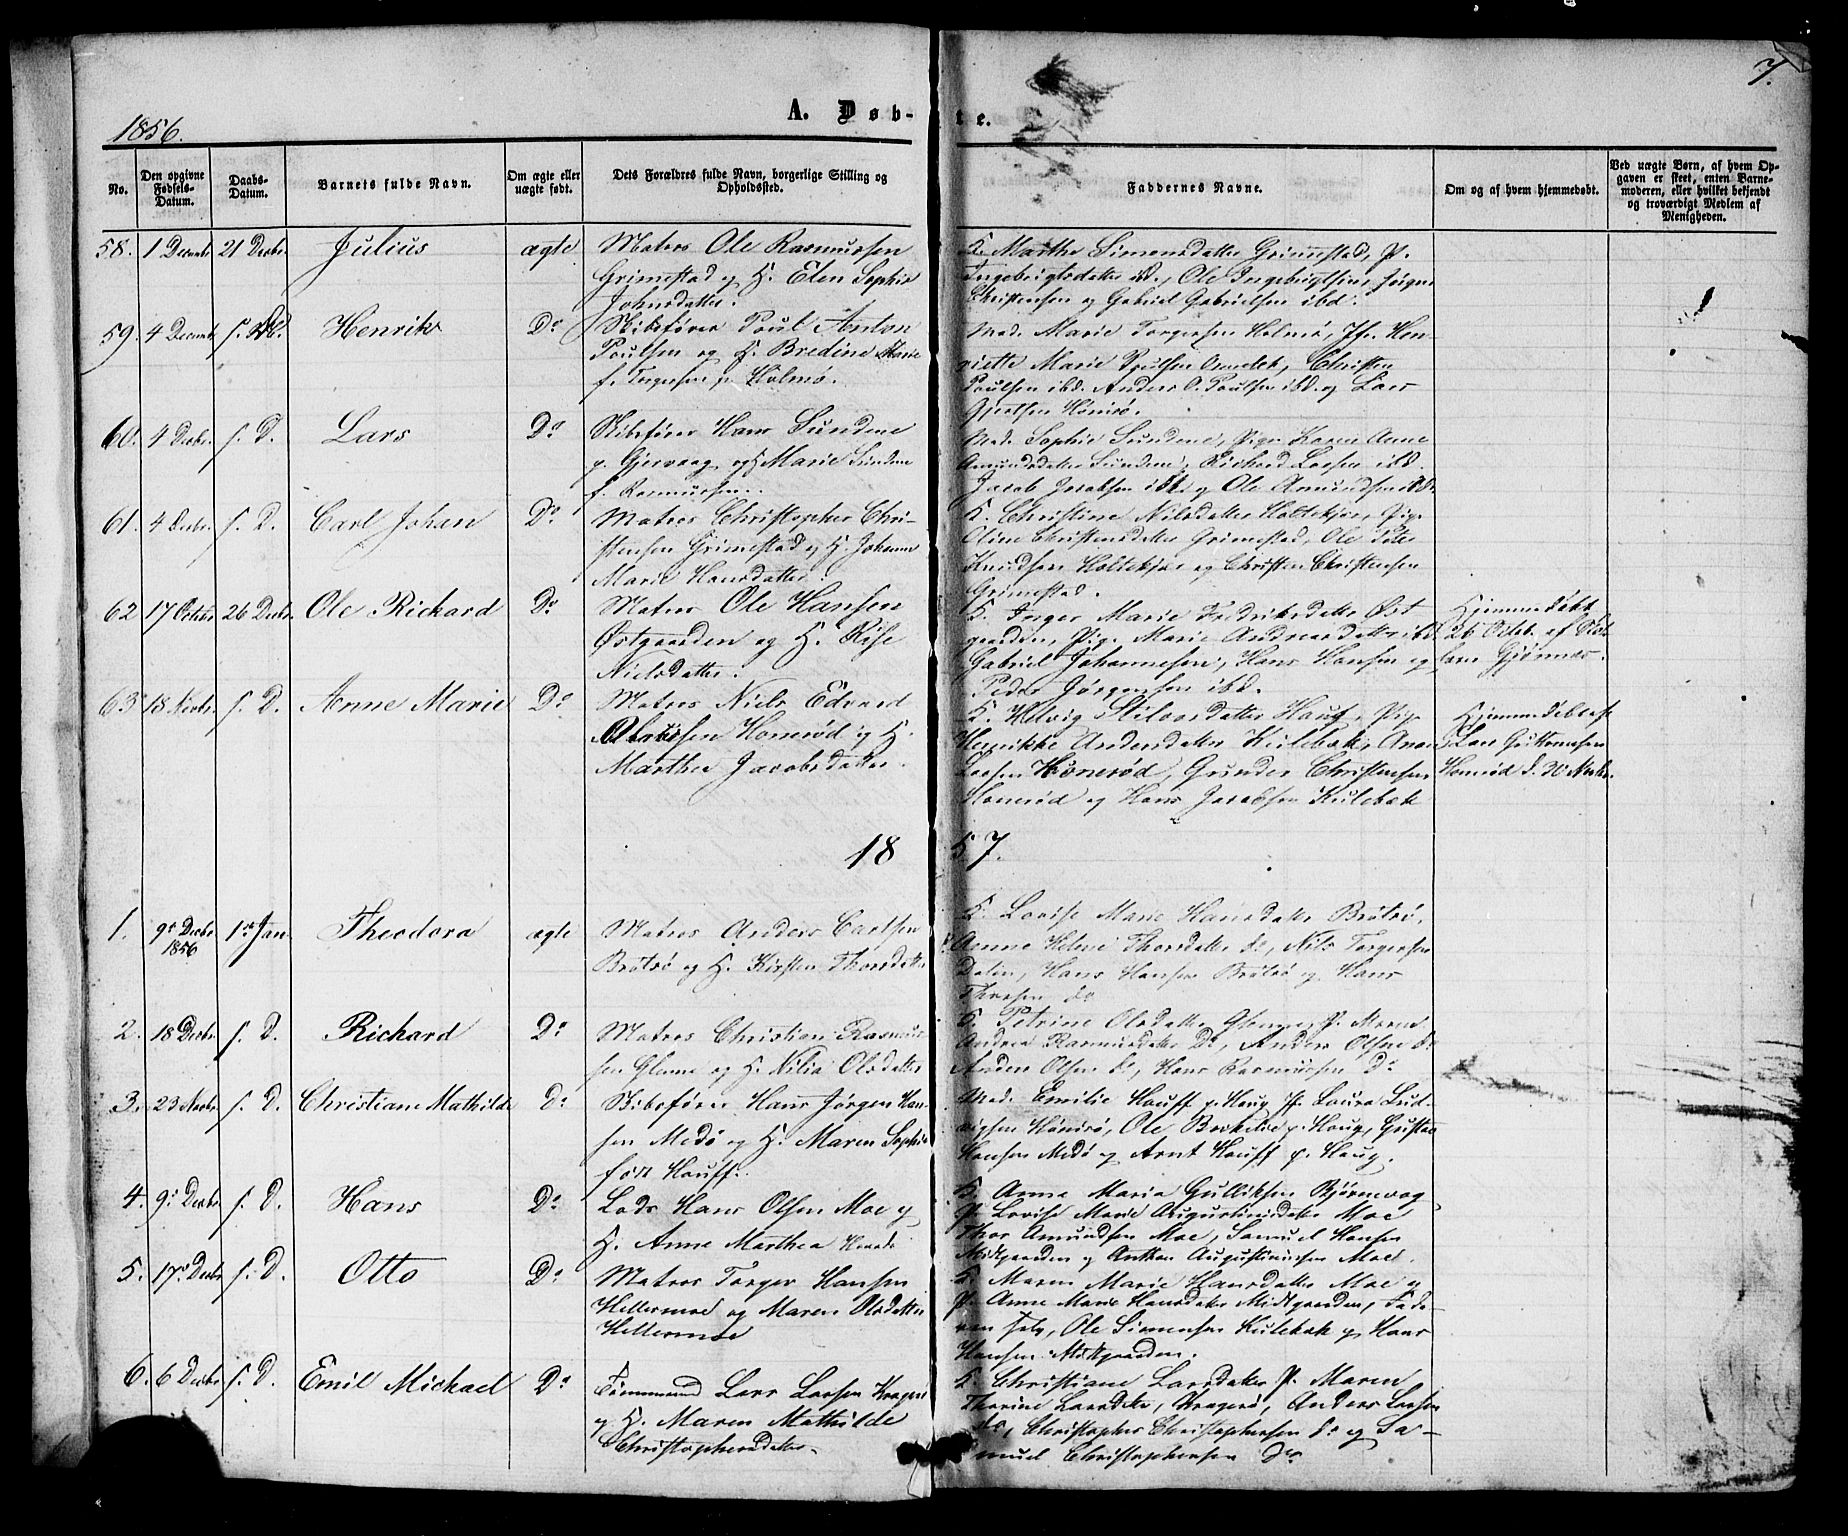 7.
1856.
A. Døb-
te.
No.
Den opgivne Fødsels-Datum.
Daabs-Datum.
Barnets fulde Navn.
Om ægte eller uægte født.
Dets Forældres fulde Navn, borgerlige Stilling og Opholdssted.
Faddernes Navne.
Om og af hvem hjemmedøbt.
Ved uægte Børn, af hvem Opgaven er skeet, enten Barnemoderen, eller hvilket bekjendt og troværdigt Medlem af Menigheden.
58. 1 Decembr 21 Decbr. Julius ægte Matros Ole Rasmussen
Grimestad og H. Elen Sophie
Johnsdatter.
K. Marthe Simonsdatter Grimestad, P.
Ingebrigtsdatter ibd., Ole Ingebrigtsen, Jørgen
Christensen og Gabriel Gabrielsen ibd.
59. 4 Decembr s. D. Henrik Do Skibsfører Poul Anton
Poulsen og H. Bredine Marie
f. Torgersen p. Holmø.
Mad. Marie Torgersen Holmø, Jfr. Hen-
riette Marie Christen
Poulsen ibd. Anders O. Poulsen ibd. og Lars
Gjertsen
60. 4 Decbr. s. D. Lars Do Skibsfører Hans Sundene
p. Gjervaag og H. Marie Sundene
f. Rasmussen.
Mad. Sophie Sundene, Pige Karen Anne
Amundsdatter Sundene, Richard Larsen ibd.
Jacob Jacobsen ibd. og Ole Amundsen ibd.
61. 4 Decbr. s. D. Carl Johan Do Matros Christopher Chri-
stensen Grimestad og H. Johanne
Marie Hansdatter.
K. Christine Nilsdatter Holtekjær, Pige
Oline Christensdatter Grimestad, Ole
Knudsen Holtekjær og Christen Christensen
Grimestad.
62 17 Octbr 26 Decbr. Ole Richard Do Matros Ole Hansen
Østgaarden og H. Rise
Nielsdatter.
K. Inger Marie Fredriksdatter Øst
gaarden, Pig. Marie Andreasdatter ibd.
Gabriel Johannesen, Hans Hansen og
Peder Jørgensen ibd.
Hjemmedøbt
26 Octb. af
Lars Gjønnes.
63 18 Novbr. s. D. Anne Marie Do Matros Niels Edvard
Honerød og H.
Marthea Jacobsdatter.
K. Helvig Haug, Pige
Henrikke Andersdatter Kulebæk,
Larsen Hønerød, Gunder Christensen
Honerød og Hans Jacobsen Kulebæk
Hjemmedøbt af
Lars Guttormsen
Honerød d. 30 Novbr.
18
57.
1. 9de Decbr 1856 1ste Jan Theodora ægte Matros Anders Carlsen
Brøtsø og H. Kirsten Thorsdatter
K. Lovise Marie Hansdatter Brøtsø,
P. Anne Helene Thorsdatter do, Nils Torgersen
Dalen, Hans Hansen Brøtsø og Hans
Thorsen do
2. 18 Decbr. s. D. Richard Do Matros Christian Rasmus-
sen Glenne og H. Nilia Olsdatter
K. Petrine Olsdatter Glenne, P. Maren
Andrea Rasmusdatter Do, Anders Olsen do
Anders Olsen do, Hans Rasmussen Do
3. 23 Novbr. s. D. Christiane Mathilde Do Skibsfører Hans Jørgen Han-
sen Medø og H. Maren Sophie
født Hauff.
Mad. Emilie Hauff p. Haug, P. Laura Lud-
vigsen Hønsø, Ole p. Haug, Gustav
Hansen Medø og Arnt Hauff p. Haug.
4. 9de Decbr. s. D. Hans Do Lods Hans Olsen Moe og
H. Anne Marthea
K. Anne Maria Gulliksen Bjørnevog
P. Lovise Marie Augustinusdatter Moe
Thor Amundsen Moe, Samuel Hansen
Midtgaarden og Anthon Augustinussen Moe.
5. 17de Decbr. s. D. Otto Do Matros Torger Hansen
Hellermoe og Maren Olsdatter
Hellermoe
K. Maren Marie Hansdatter Moe og
P. Anne Marie Hansdatter Midtgaarden, Fade-
ren selv, Ole Simensen Kulebæk og Hans
Hansen Midtgaarden.
6. 6 Decbr. s. D. Emil Michael Do Tømmermand Lars Larsen Kragerø
og H. Maren Mathilde
Christophersdatter
K. Christiane Larsdatter P. Maren
Thorine Larsdatter, Kragerø, Anders Larsen
do, Christopher Christophersen do og Sa-
muel Christophersen Do